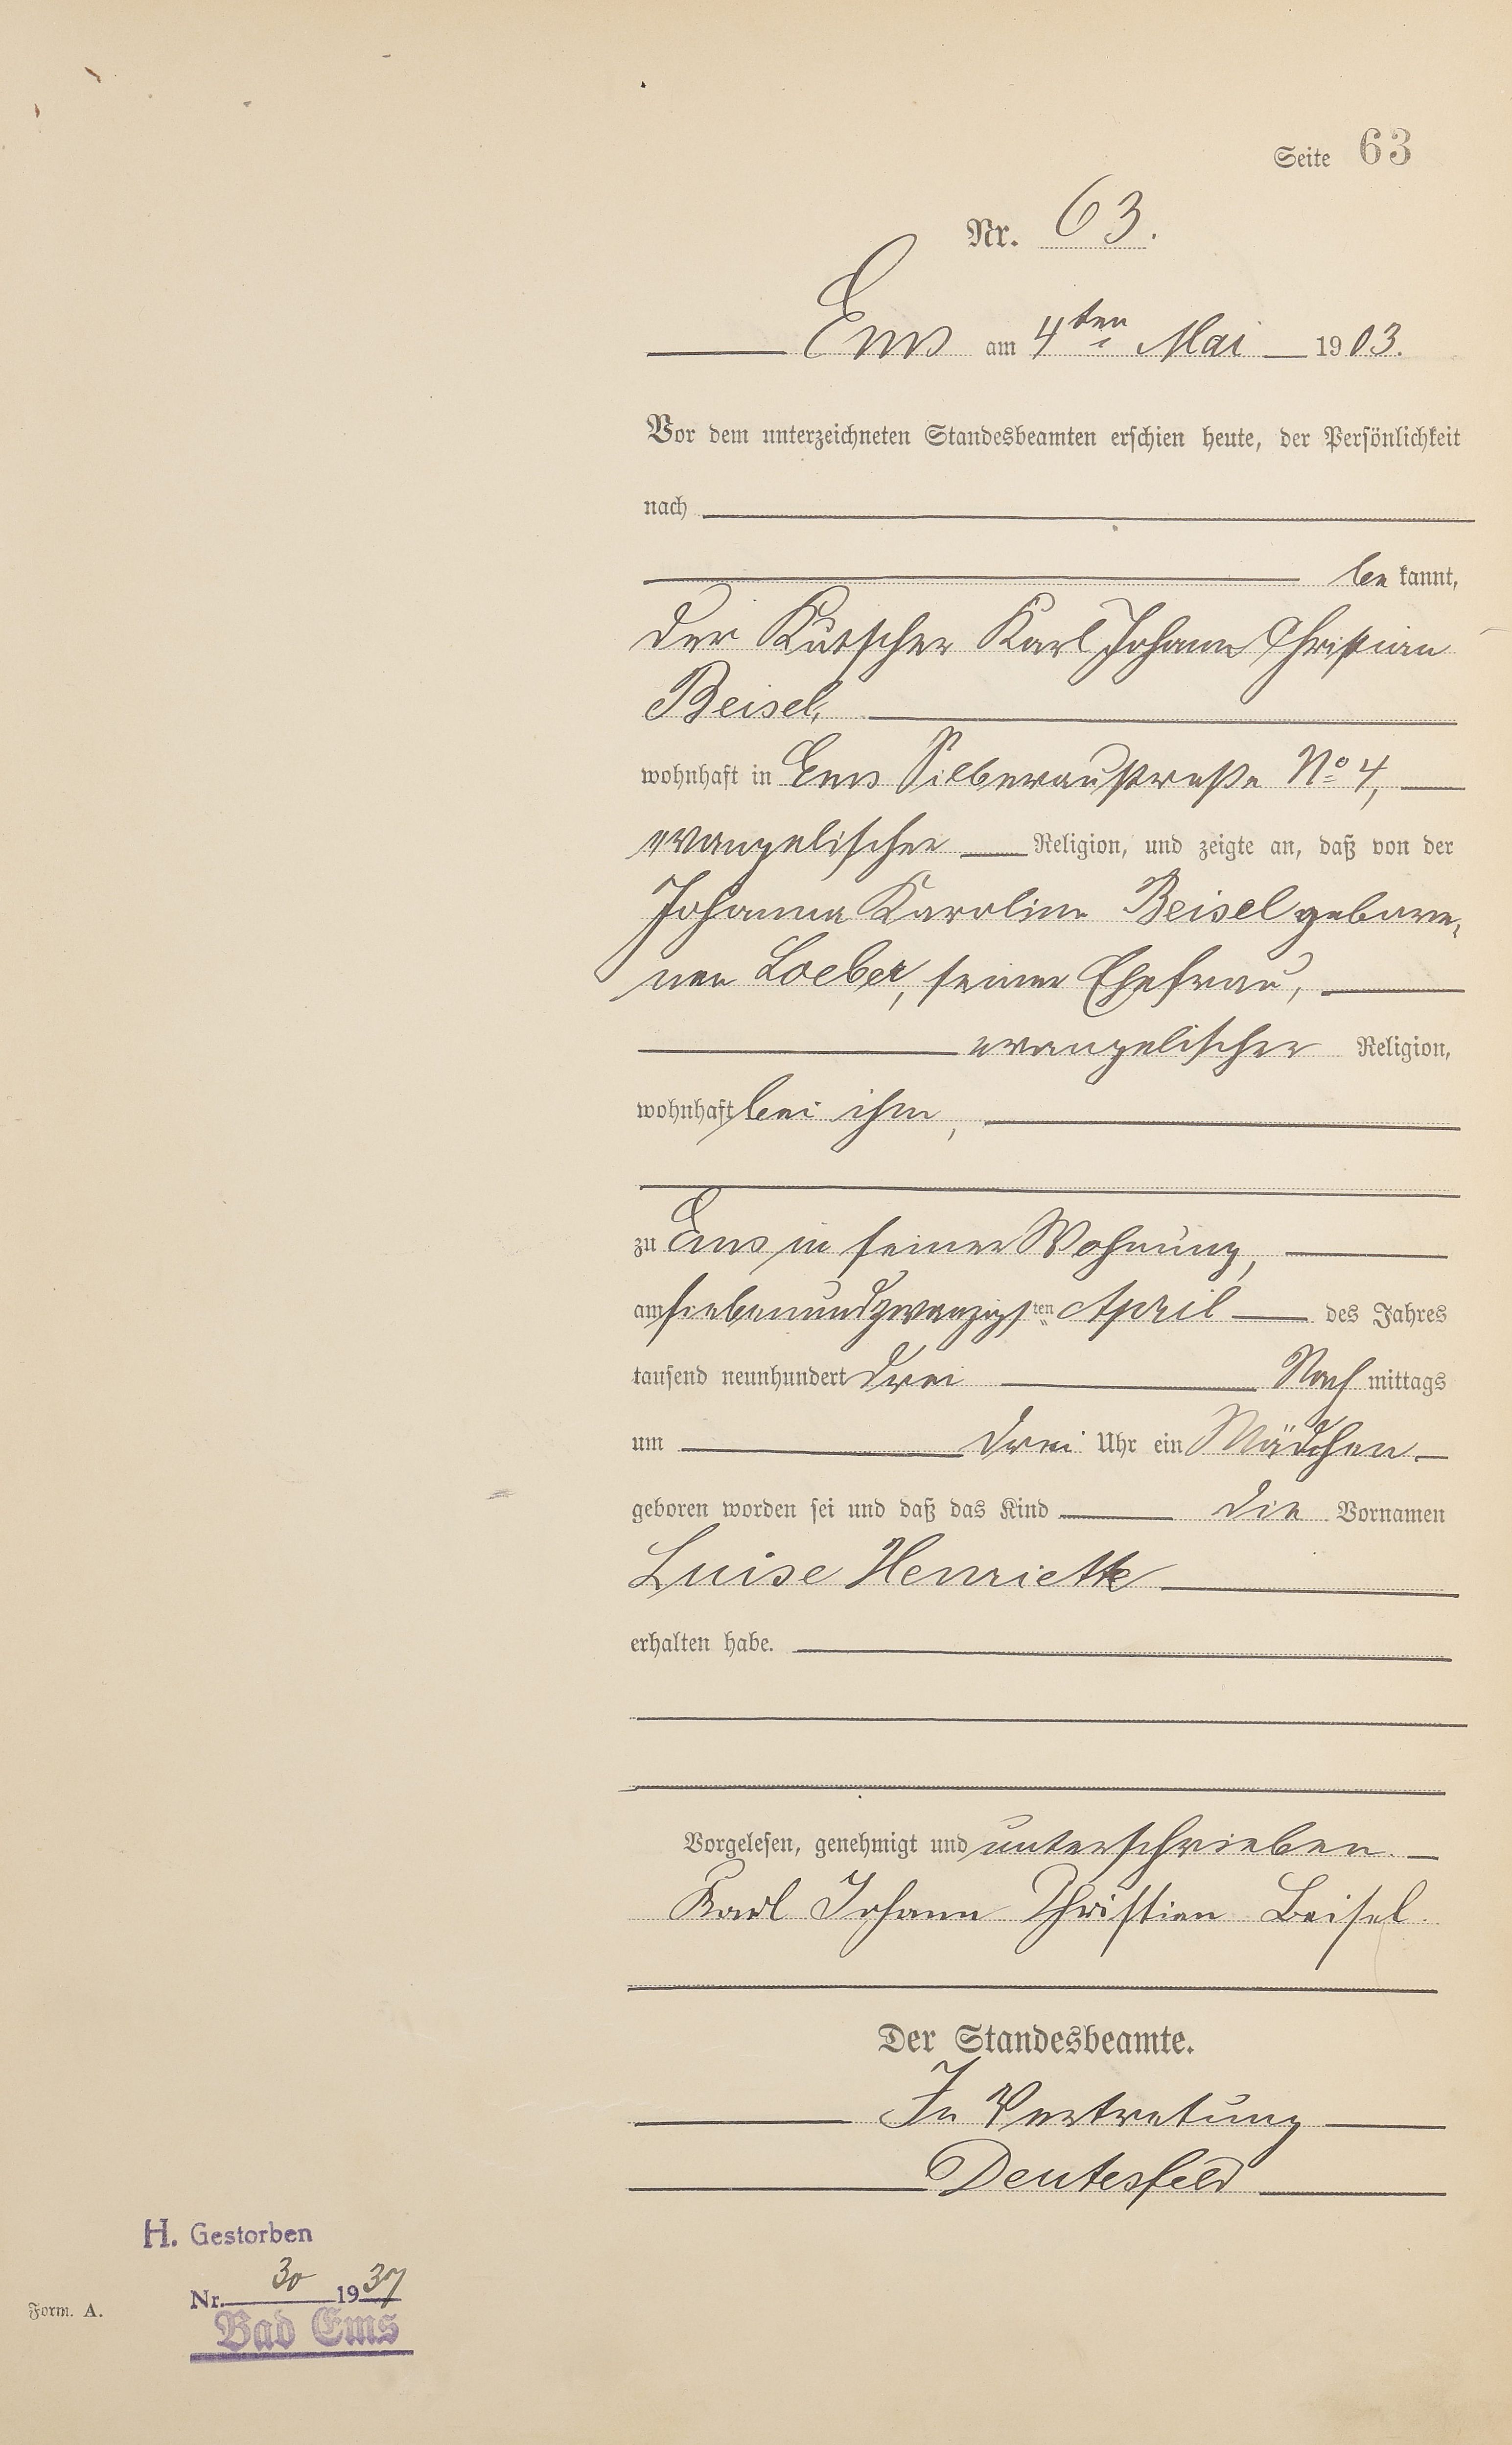 Seite 63
Nr. 63.
Ems am 4ten Mai 1903.
Vor dem unterzeichneten Standesbeamten erschien heute, der Persönlichkeit
nach
bekannt,
der Kutscher Karl Johann Christian
Beisel,
wohnhaft in Ems Silberaustraße No 4,
evangelischer Religion, und zeigte an, daß von der
Johanna Karoline Beisel gebore-
nen Loeber, seiner Ehefrau,
evangelischer Religion,
wohnhaft bei ihm,
zu Ems in seiner Wohnung,
am siebenundzwanzigsten April des Jahres
tausend neunhundert drei Nachmittags
um drei Uhr ein Mädchen
geboren worden sei und daß das Kind die Vornamen
Luise Henriette
erhalten habe.
Vorgelesen, genehmigt und unterschrieben.
Karl Johann Christian Beisel.
Der Standesbeamte.
In Vertretung
Deutesfeld
H. Gestorben
Nr. 30 1937
Bad Ems
Form. A.